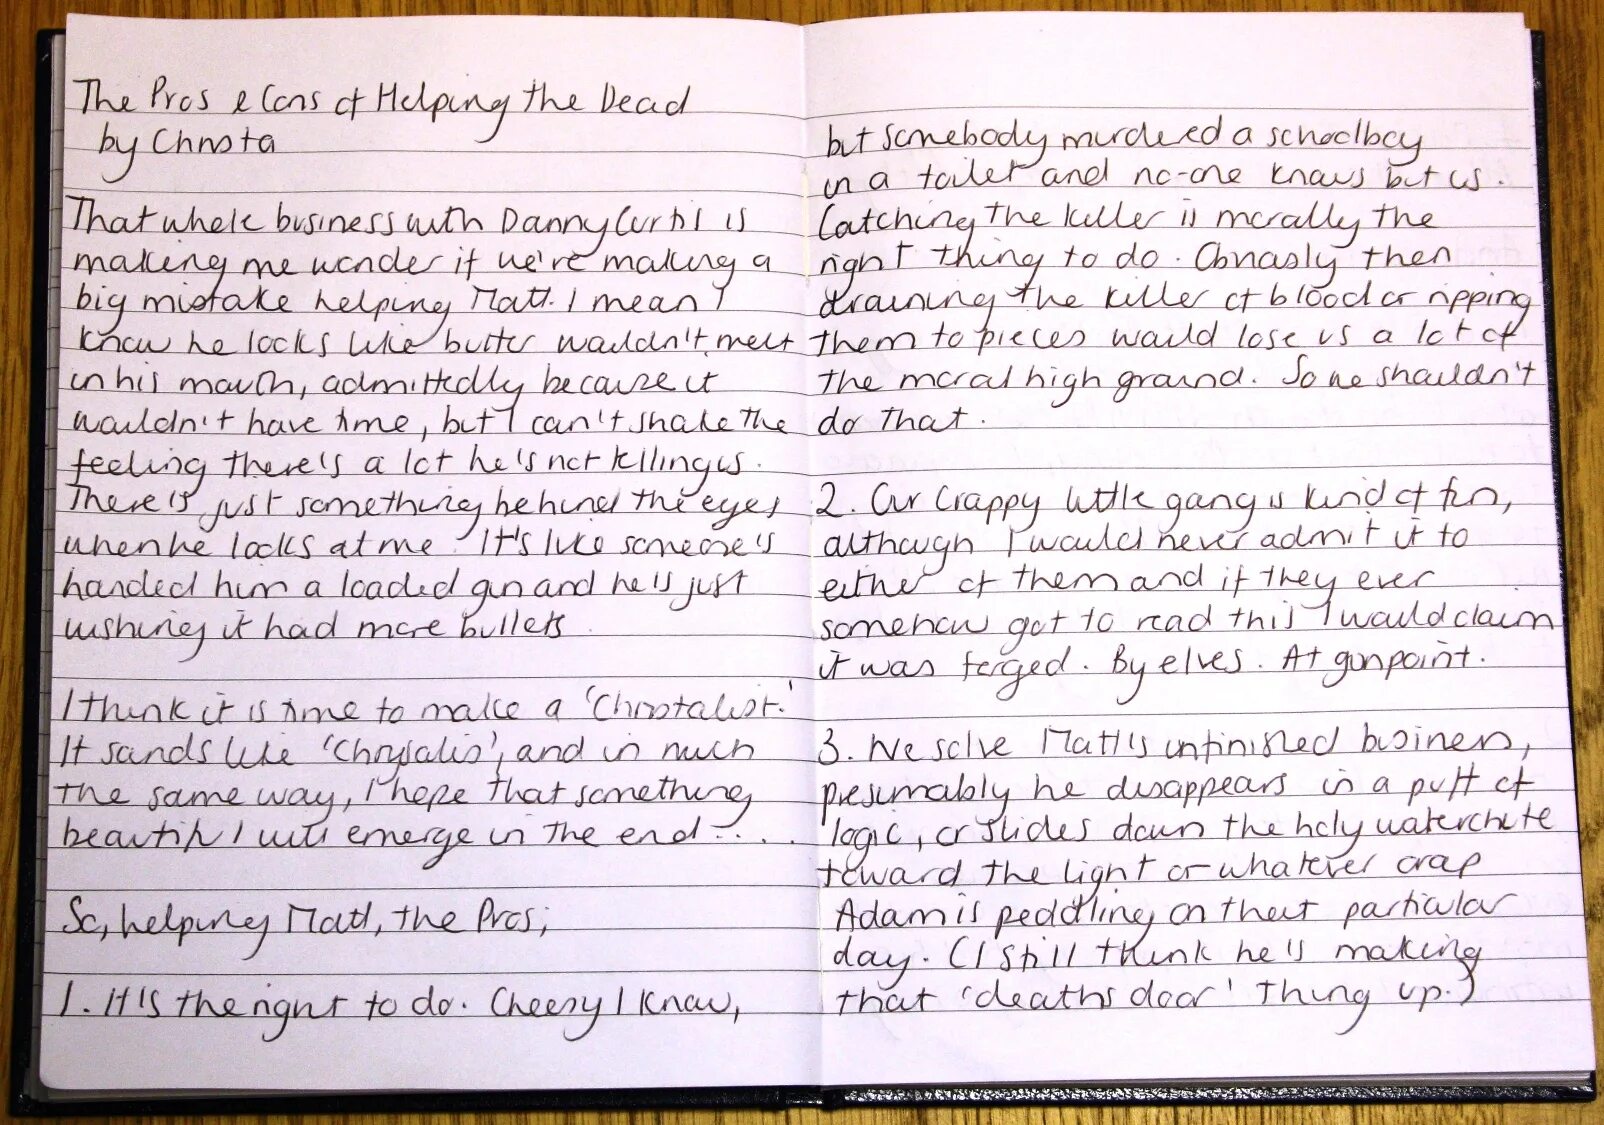 The Pros & Cons of Helping the Dead
by Christa
That whole business with Danny Curtis is
making me wonder if we're making a
big mistake helping Matt. I mean I
know he looks like butter wouldn't melt
in his mouth, admittedly because it
wouldn't have time, but I can't shake the
feeling there's a lot he's not telling us.
There's just something behind the eyes
when he looks at me. It's like someone's
handed him a loaded gun and he's just
wishing it had more bullets.
I think it is time to make a 'Christalist.'
It sands like 'Chrysalis', and in much
the same way, I hope that something
beautiful will emerge in the end....
So, helping Matt, the Pros;
1. It's the right to do. Cheesy I know,
but somebody murdered a schoolboy
in a toilet and no-one knows but us.
Catching the killer is morally the
right thing to do. Obviously then
draining the killer of blood or ripping
them to pieces would lose us a lot of
the moral high ground. So we shouldn't
do that.
2. Our crappy little gang is kind of fun,
although I would never admit it to
either of them and if they ever
somehow got to read this I would claim
it was forged. By elves. At gunpoint.
3. We solve Matt's unfinished business,
presumably he disappears in a puff of
logic, or slides down the holy waterchute
toward the light or whatever crap
Adam is peddling on that particular
day. (I still think he's making
that 'deaths door' thing up.)